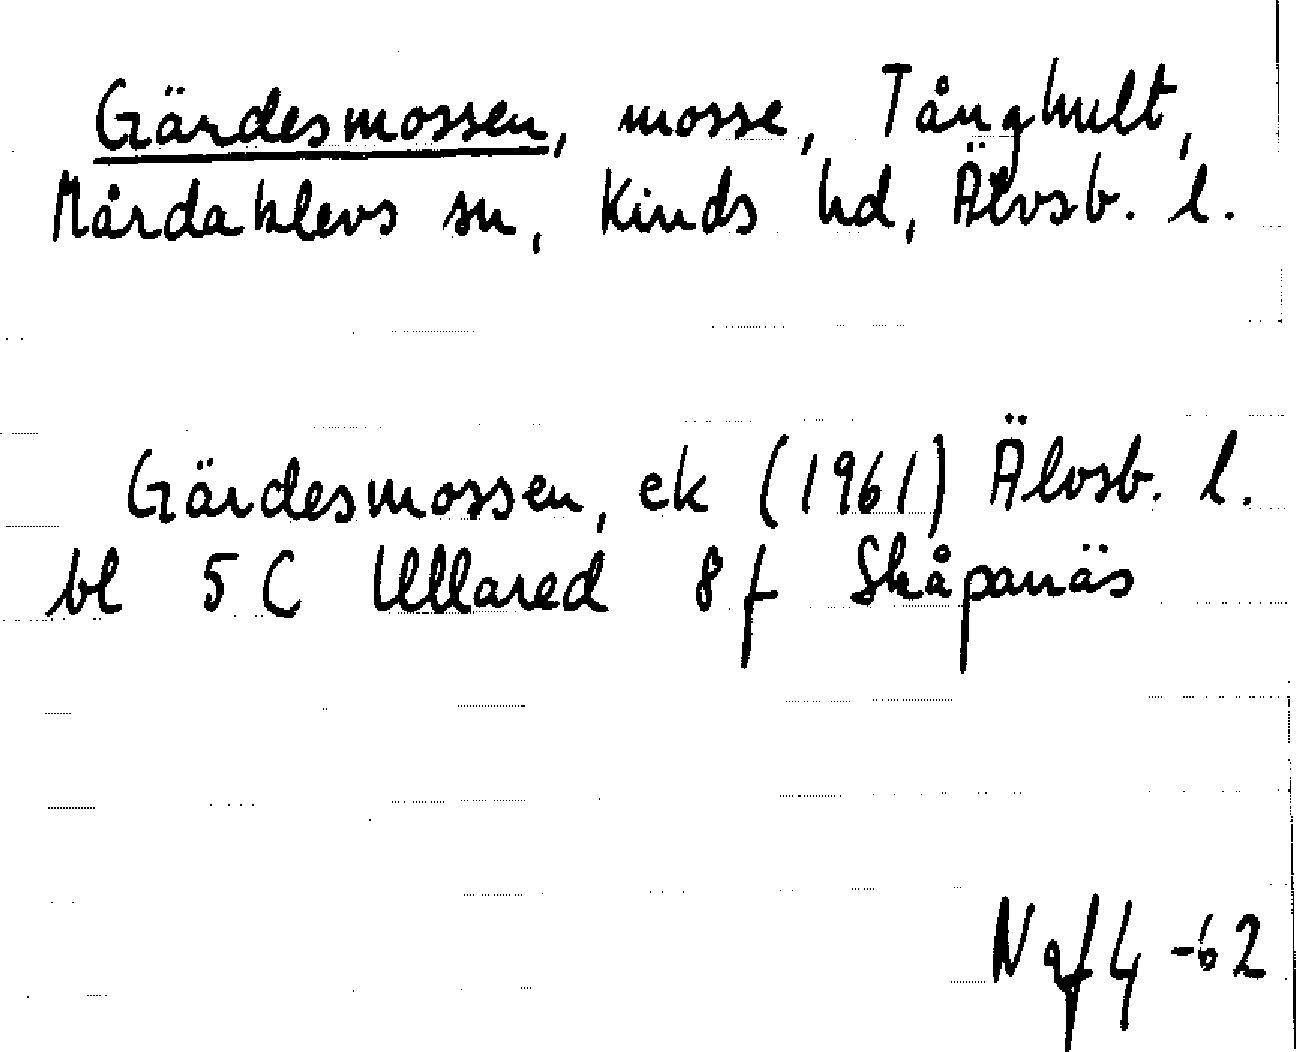 Gärdesmossen, mosse, Tånghult,
Mårdaklevs sn, Kinds hd, Älvsb. l.
Gärdesmossen, ek (1961) Älvsb. l.
bl 5 C Ullared 8 f Skåpanäs
-62